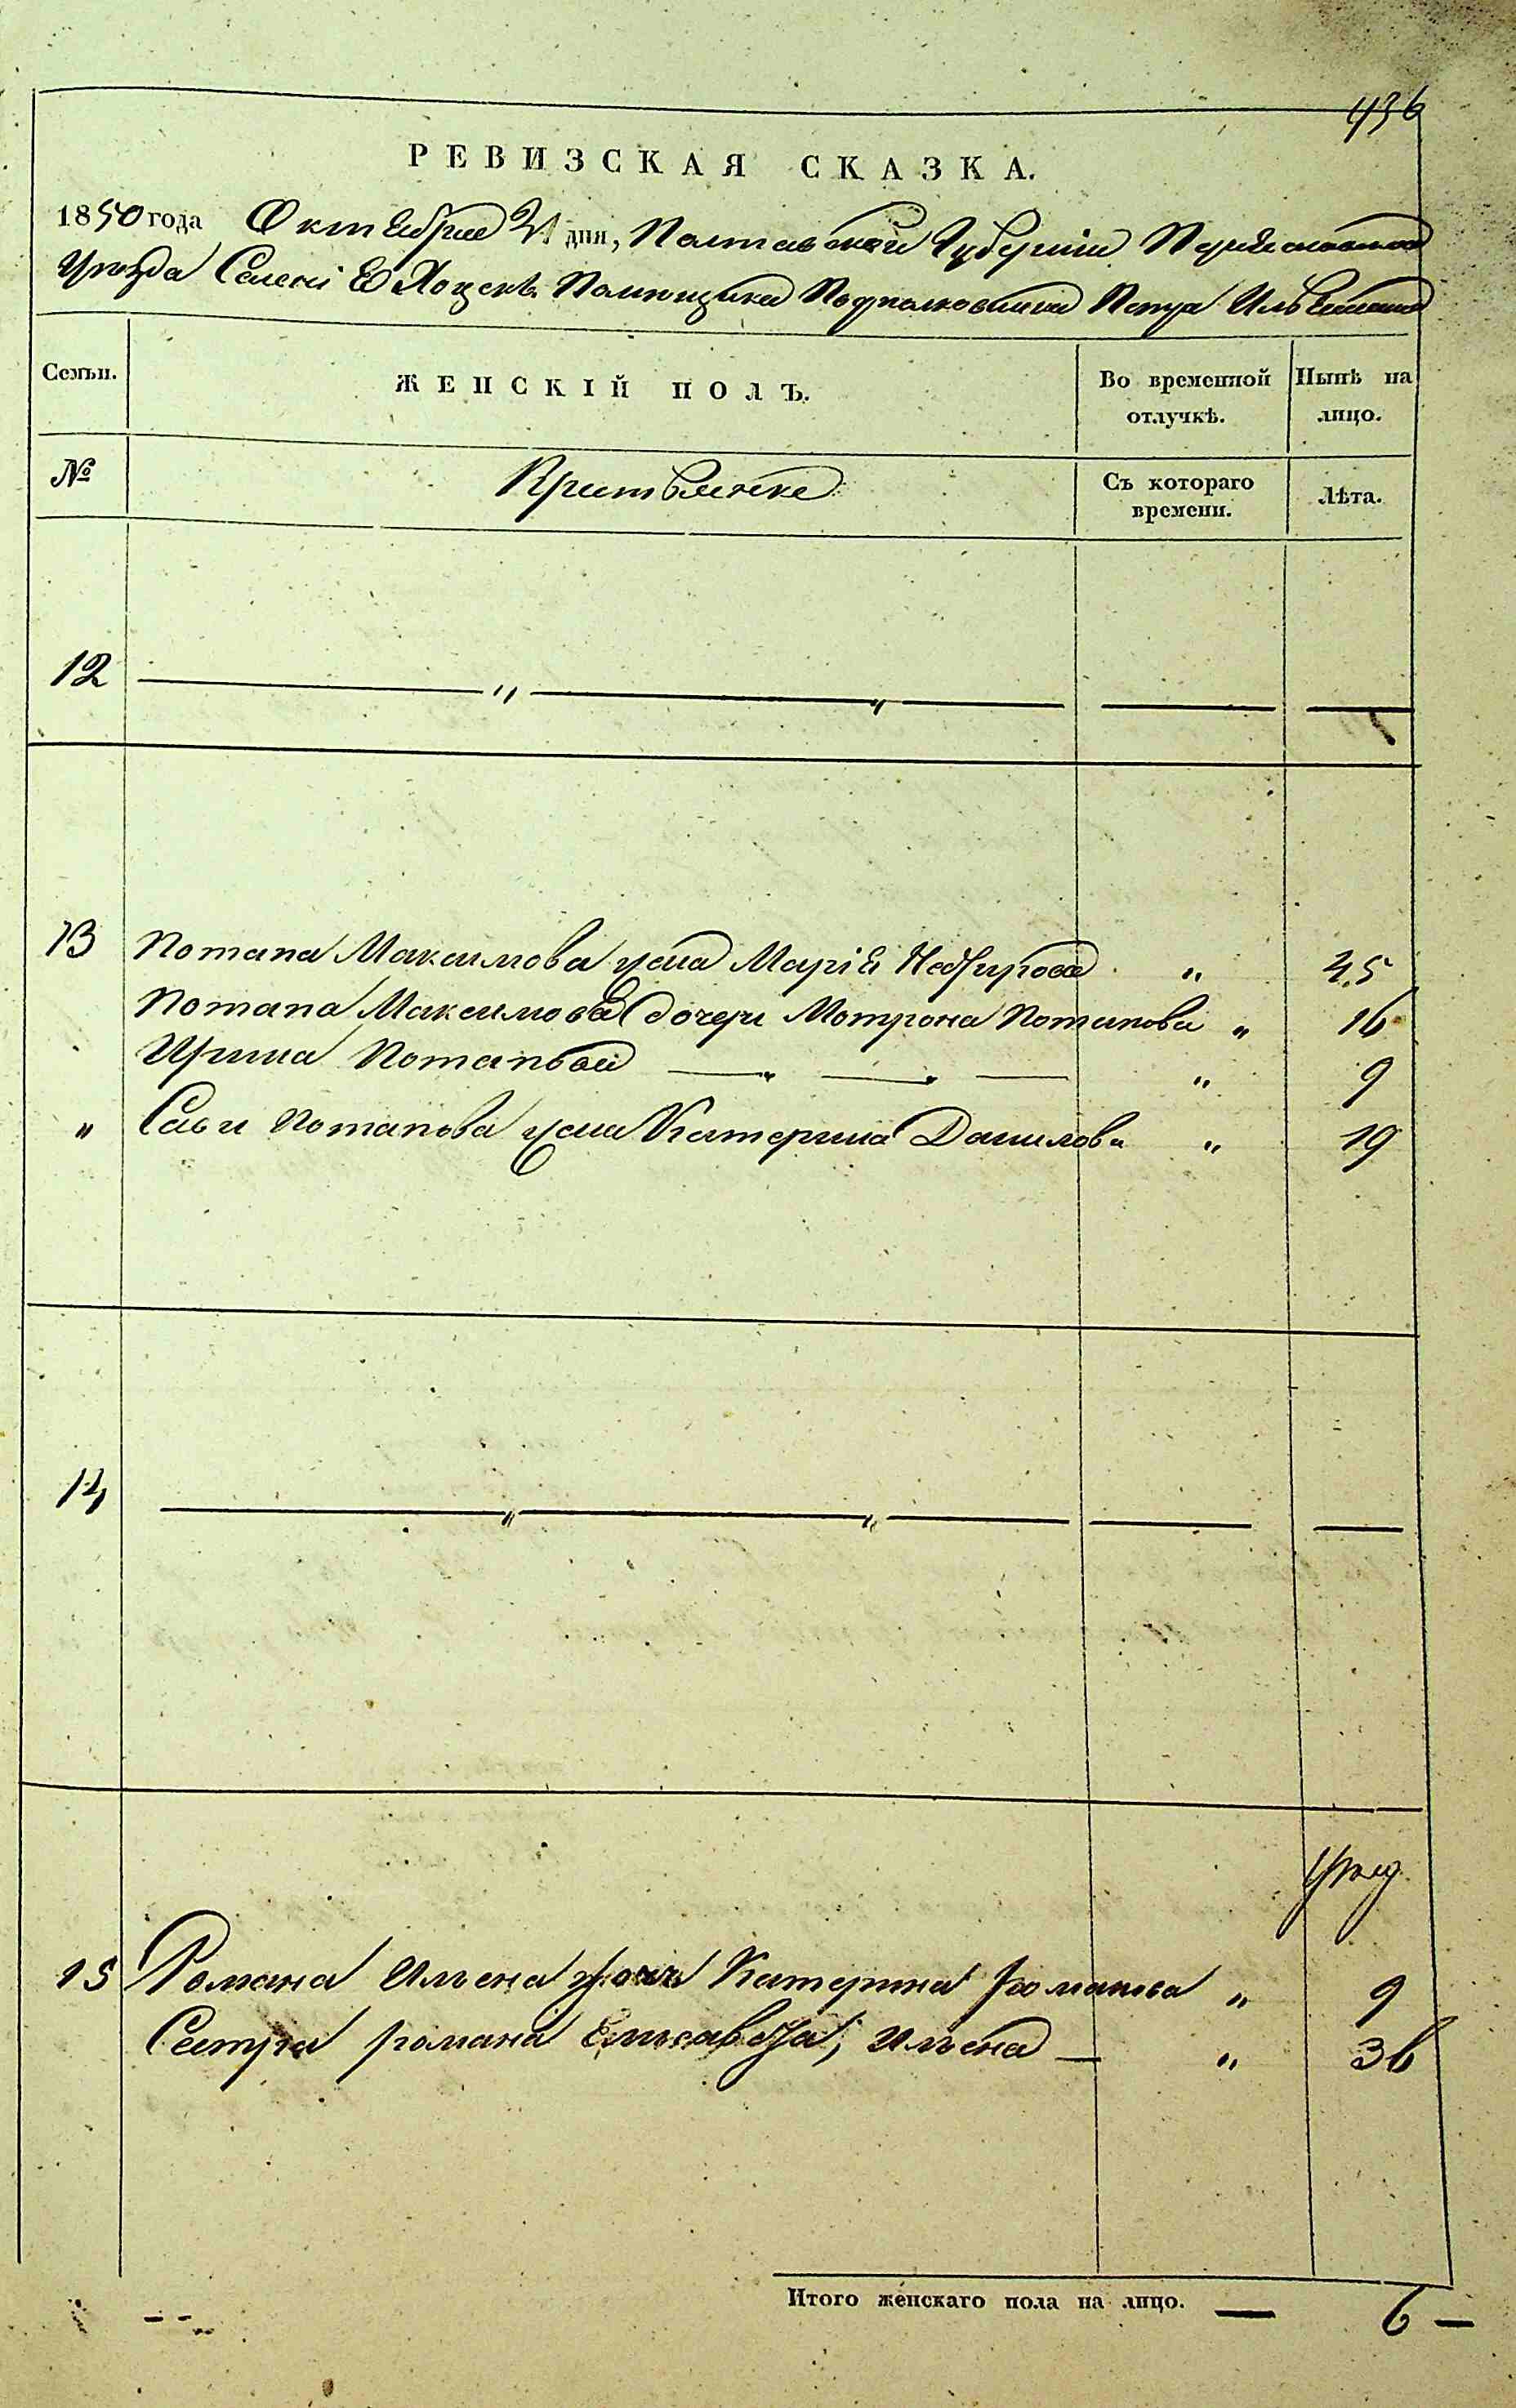 436
РЕВИЗСКАЯ СКАЗКА.
1850 года Октября 21 дня, Полтавской Губернии Переяславскаго
Уезда Селенія Хоцекъ Помещика Подполковника Петра
Семьи.
ЖЕНСКІЙ ПОЛЪ.
Во временной отлучкѣ.
Нынѣ на лицо.
№
Крестьянке
Съ котораго времени.
Лѣта.
12 — „ — „ — — —
13 Потапа Максимова жена Марія Никифорова „ 45
Потапа Максимова дочери Мотрона Потапова „ 16
Ирина Потапова — „ — „ — „ 9
„ Савы Потапова жена Катерина Данилова „ 19
14 — „ — „ — — —
15 Романа Ильена дочь Катерина романова „ 9
Сестра романа Елисавета, Ильена — „ 36
Итого женскаго пола на лицо. — 6 —